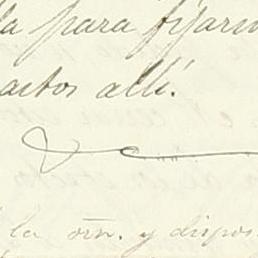 la para fijarm
actos allí.
la orn. y dispos